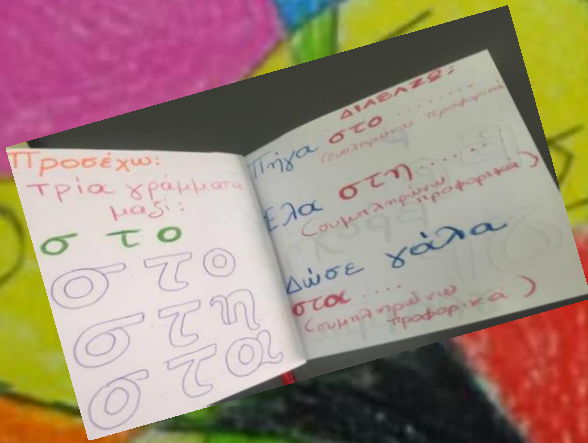 Προσέχω:
τρία γράμματα
μαζί:
σ το
σ το
σ τη
σ τα
ΔΙΑΒΑΖΩ:
Πήγα στο ........
(συμπληρώνω προφορικά)
Έλα στη ......
(συμπληρώνω
προφορικά)
Δώσε γάλα
στα ....
(συμπληρώνω
προφορικά)